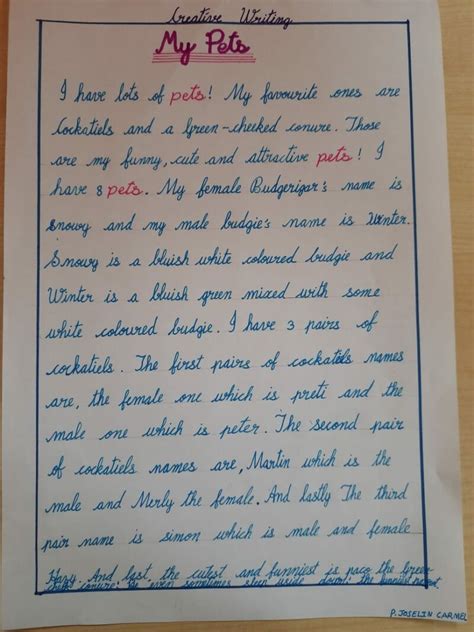 Creative Writing
My Pets
I have lots of pets! My favourite ones are
Cockatiels and a Green-cheeked conure. Those
are my funny, cute and attractive pets! I
have 8 pets. My female Budgerigar's name is
Snowy and my male budgie's name is Winter.
Snowy is a bluish white coloured budgie and
Winter is a bluish green mixed with some
white coloured budgie. I have 3 pairs of
cockatiels. The first pairs of cockatiels names
are, the female one which is preti and the
male one which is peter. The second pair
of cockatiels names are, Martin which is the
male and Merly the female. And lastly The third
pair name is simon which is male and female
And last, the cutest and funniest is paco the Green
conure. he even sometimes sleep upside down! the funniest
P. JOSELIN CARMEL